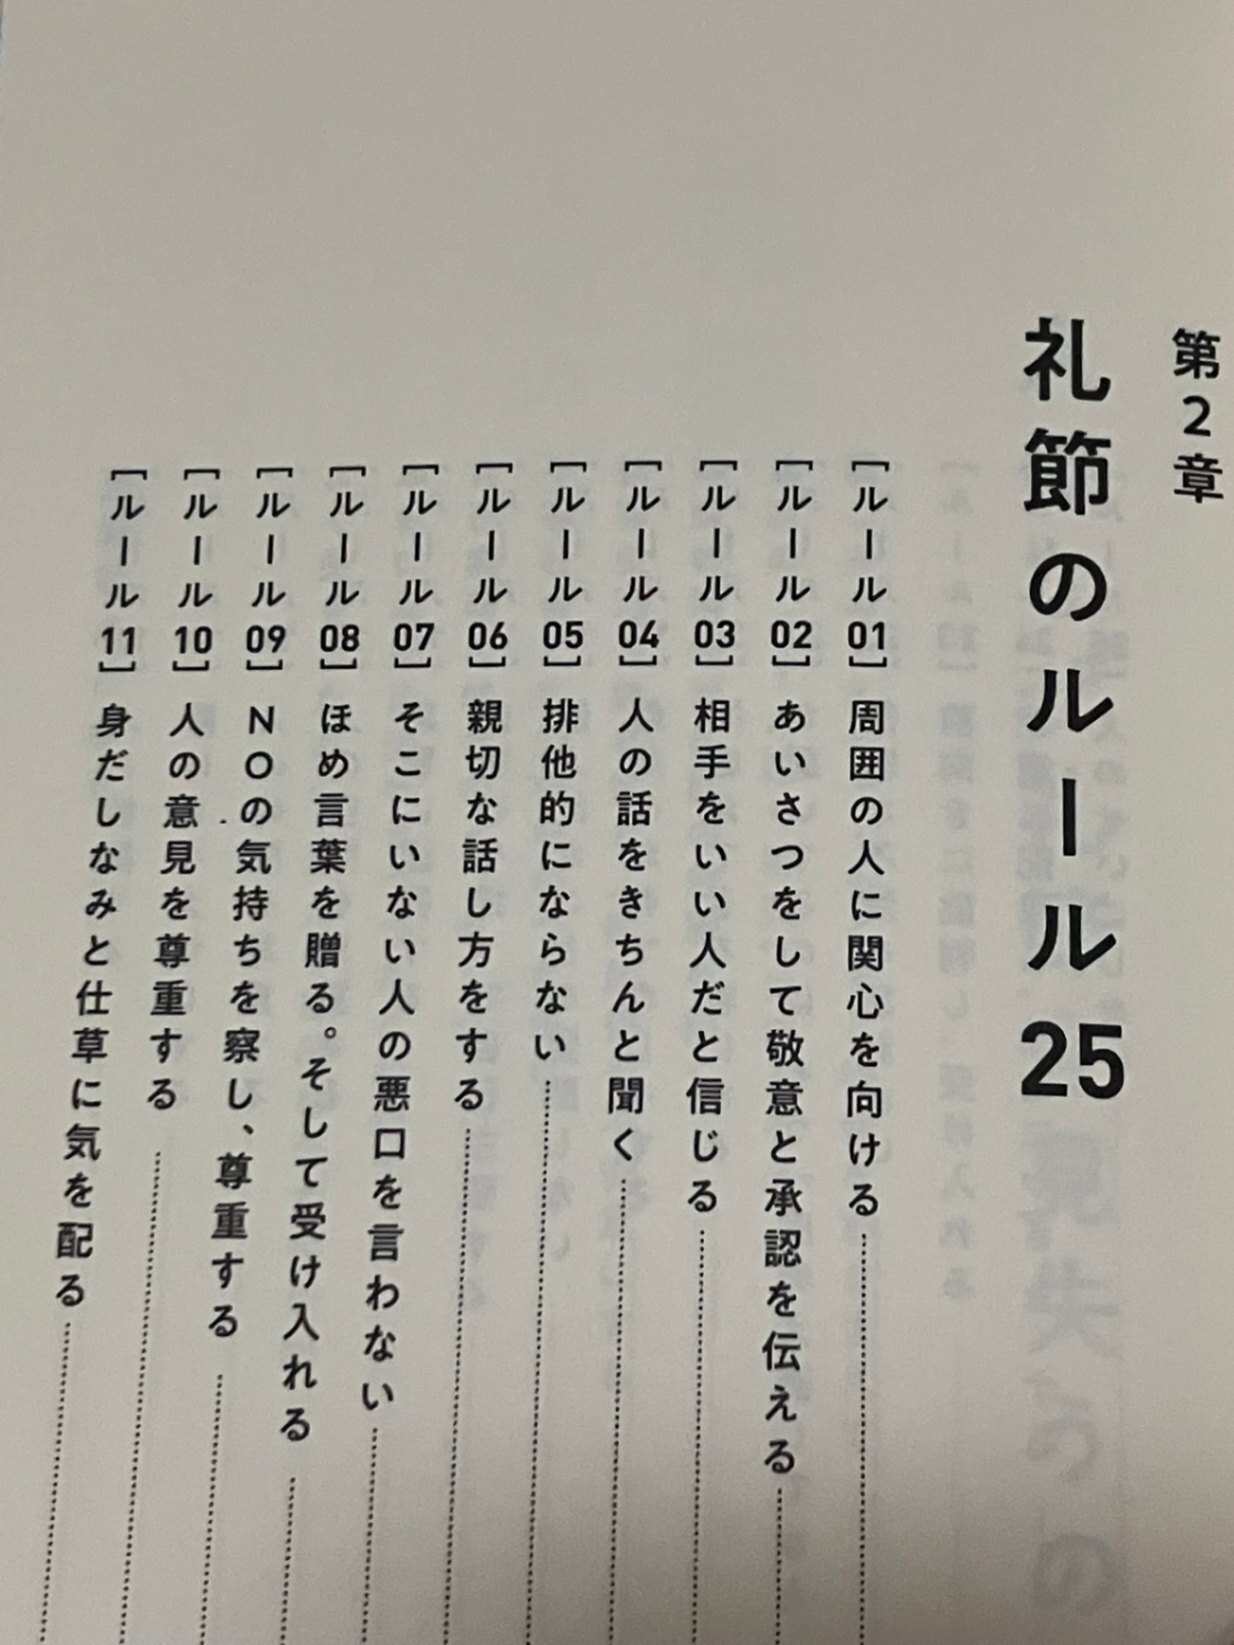 第2章
礼節のルール25
[ルール01] 周囲の人に関心を向ける
[ルール02] あいさつをして敬意と承認を伝える
[ルール03] 相手をいい人だと信じる
[ルール04] 人の話をきちんと聞く
[ルール05] 排他的にならない
[ルール06] 親切な話し方をする
[ルール07] そこにいない人の悪口を言わない
[ルール08] ほめ言葉を贈る。そして受け入れる
[ルール09] NOの気持ちを察し、尊重する
[ルール10] 人の意見を尊重する
[ルール11] 身だしなみと仕草に気を配る